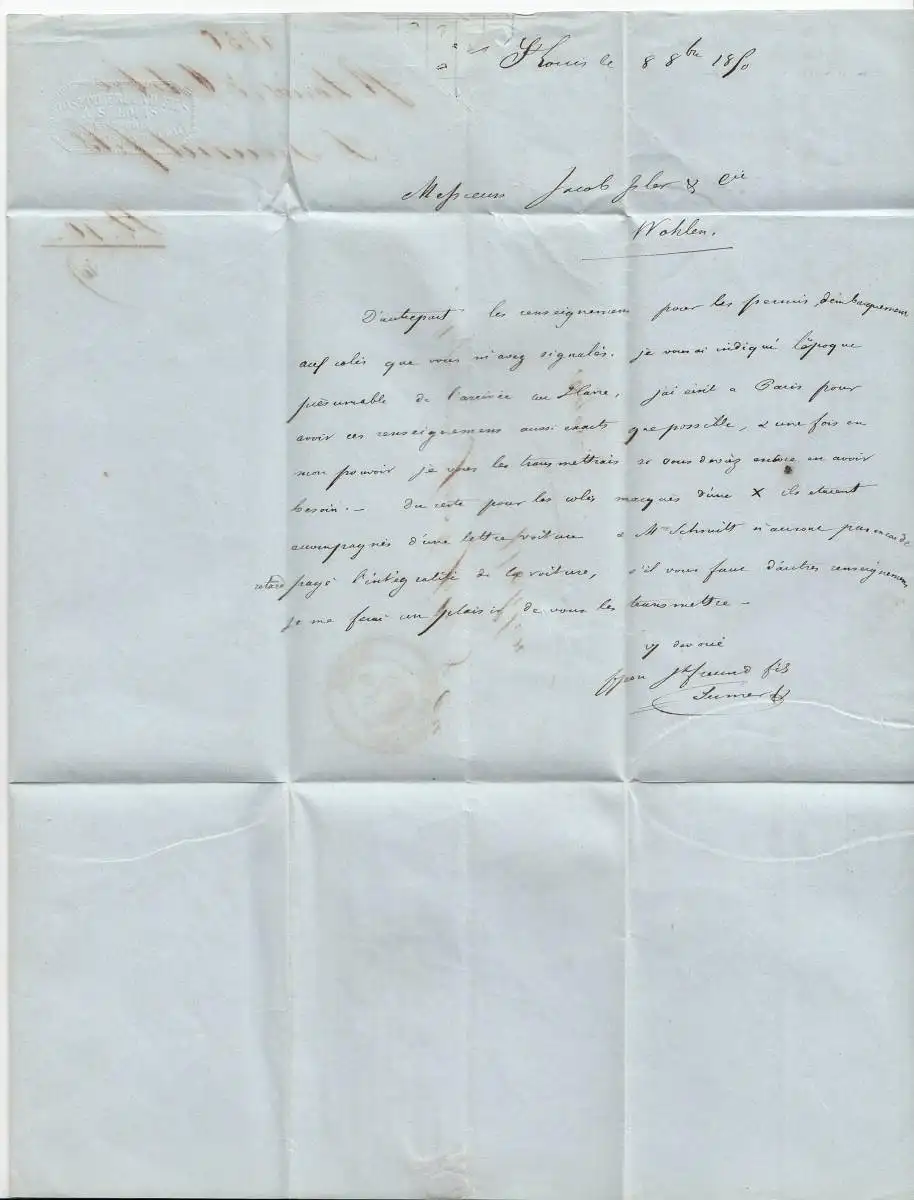 St Louis le 8 8bre 1850
Messieurs Jacob Isler & Cie
Wohlen.
D'autrepart les renseignemens pour les permis d'embarquement
aux colis que vous m'avez signalés. je vous ai indiqué l'époque
présumable de l'arrivée au Havre, j'ai ecrit a Paris pour
avoir ces renseignemens aussi exacts que possible, & une fois en
mon pouvoir je vous les transmettrais si vous deviez encore en avoir
besoin. — du reste pour les colis marqués d'une X ils etaient
accompagnés d'une lettre voiture & Mrs Schmitt n'auront pas en cas de
retard payé l'intégralité de la voiture, s'il vous faut d'autres renseignemens
je me ferai un plaisir de vous les transmettre —
devoué
ppon Jh freund fils